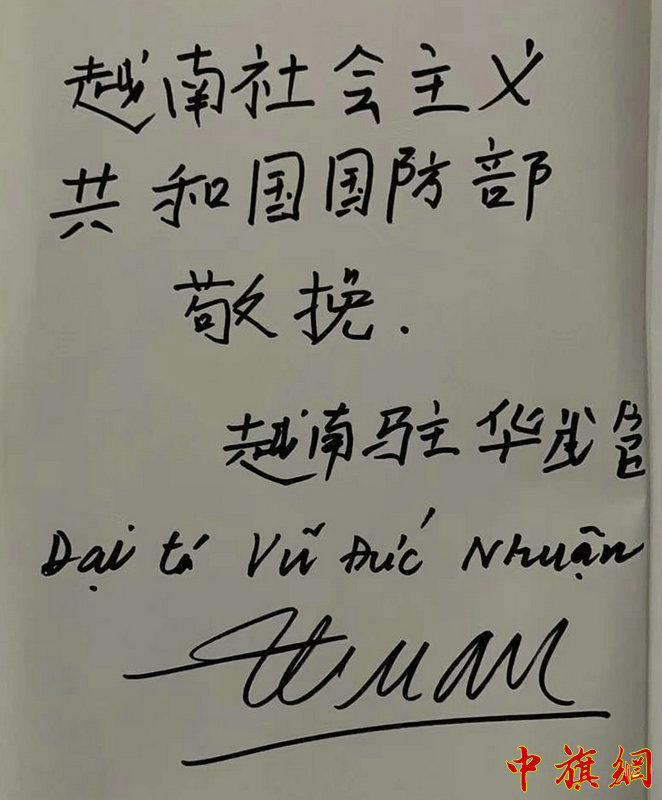 越南社会主义
共和国国防部
敬挽.
越南驻华武官
Đại tá Vũ Đức Nhuận
中旗網